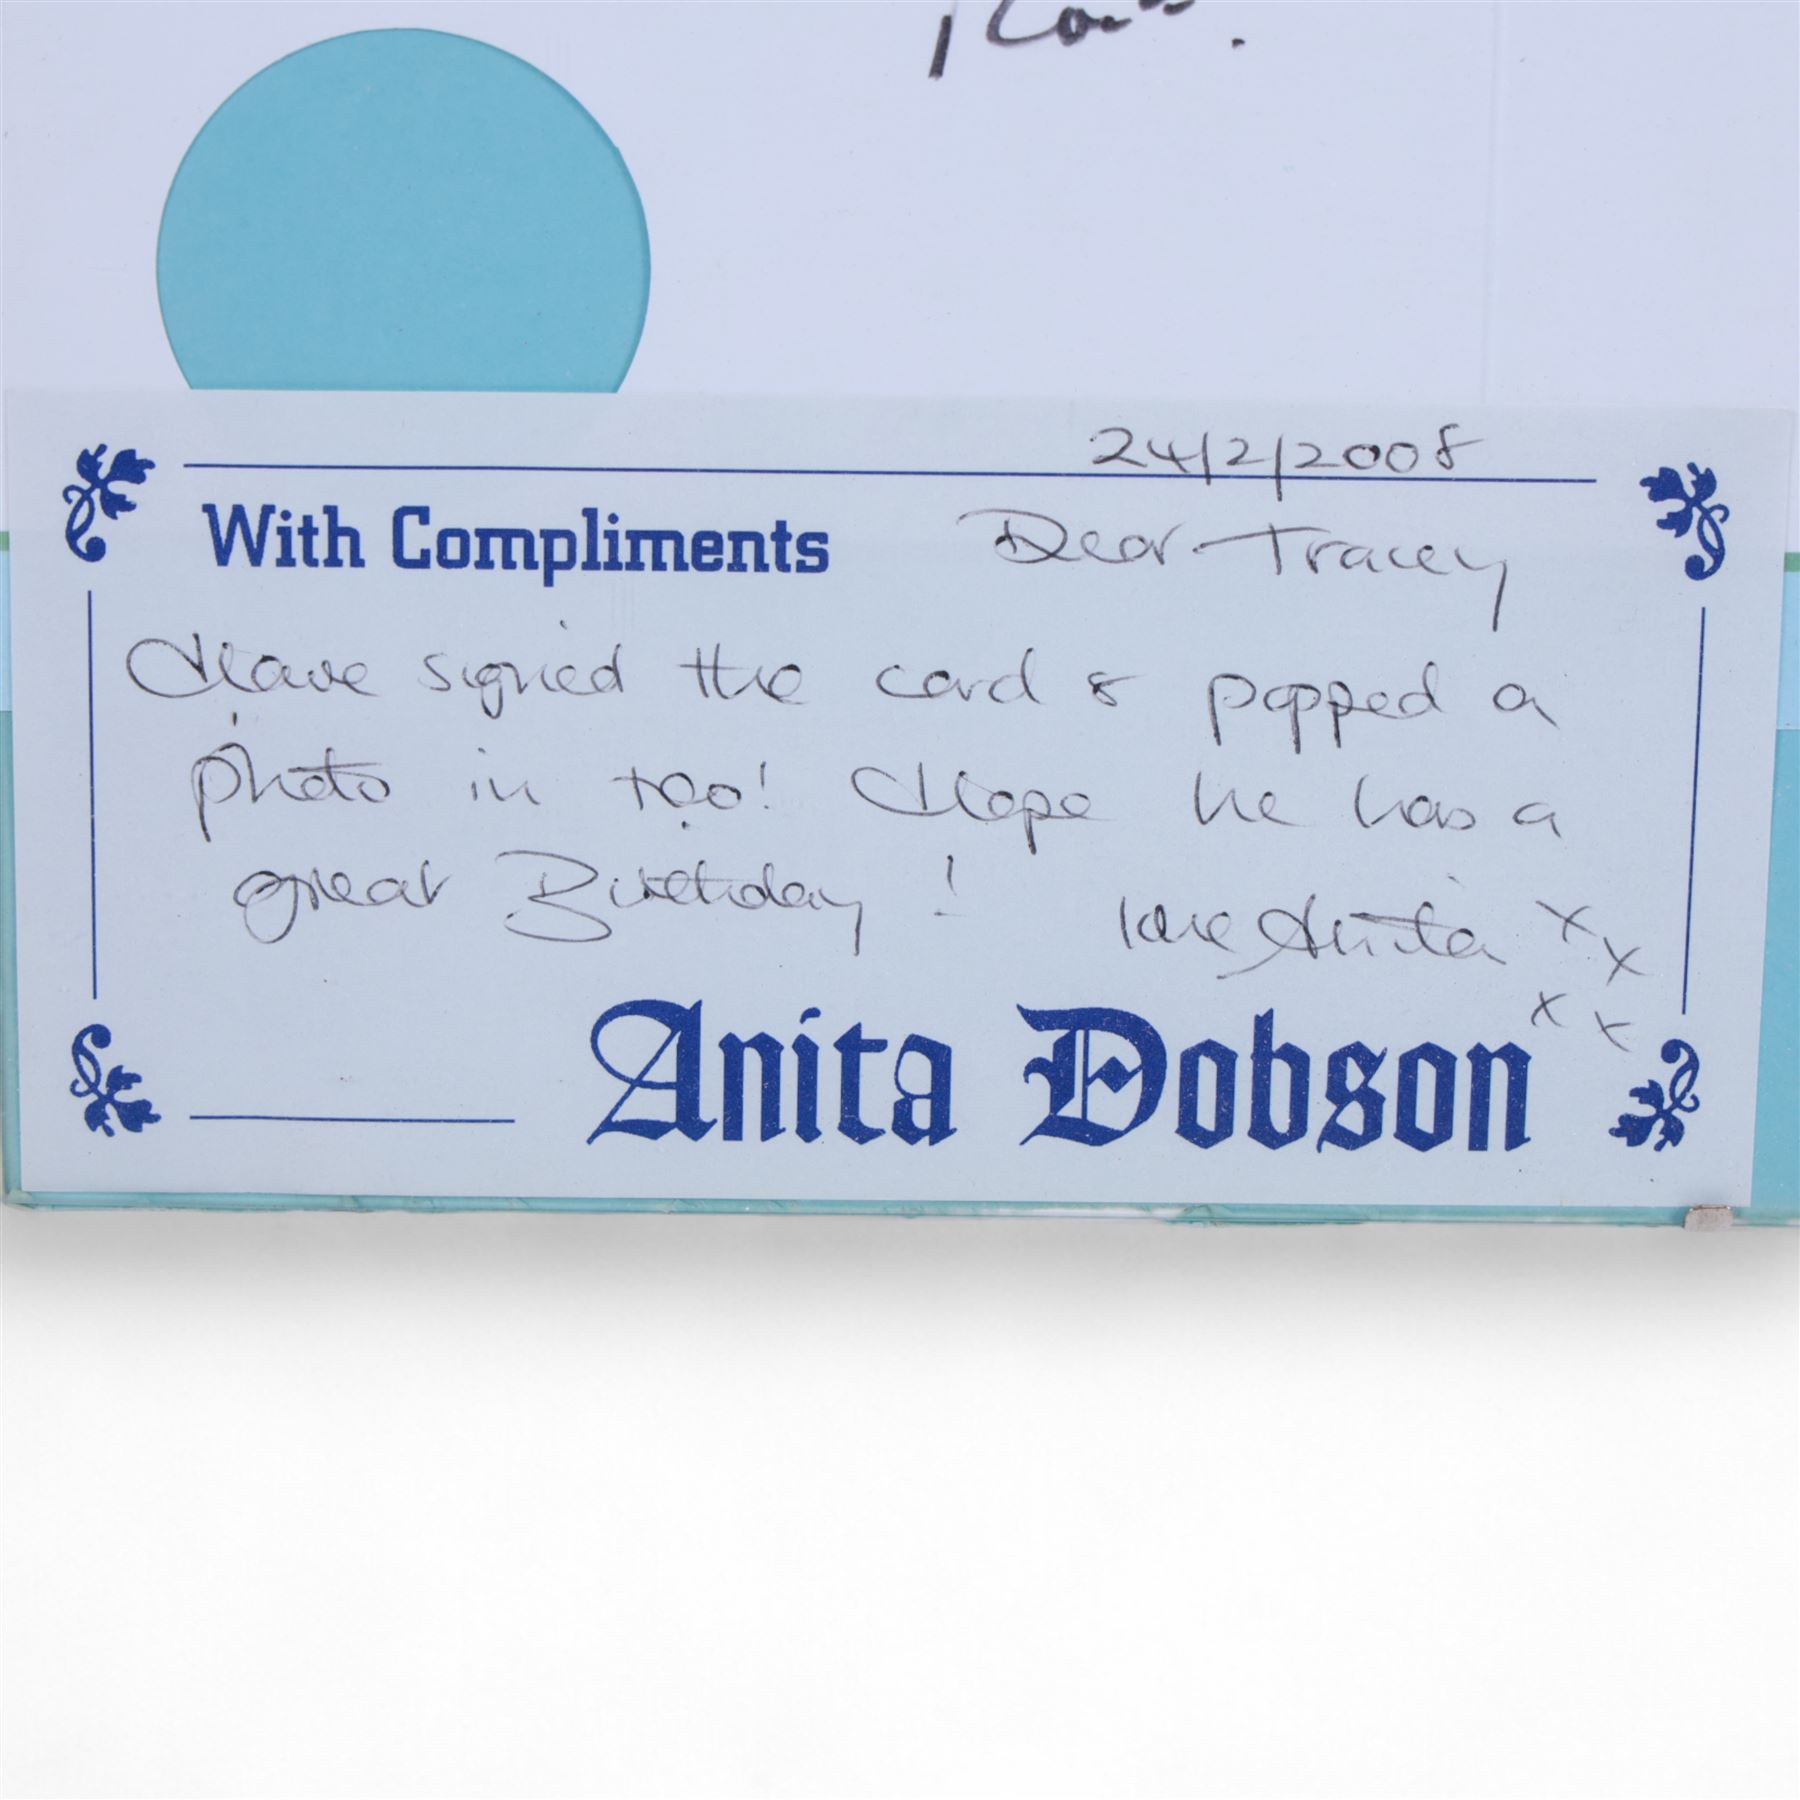 24/2/2008
With Compliments Dear Tracey
Have signed the card & popped a
photo in too! Hope he has a
great Birthday! love Anita xx
xx
Anita Dobson